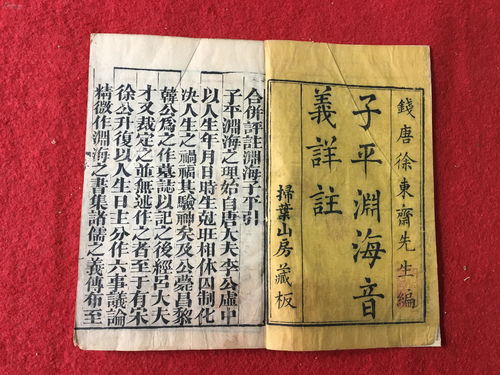 錢唐徐東齋先生編
子平淵海音
義詳註
掃葉山房藏板
合併評註淵海子平引
子平淵海之理始自唐大夫李公虛中
以人生年月日時生尅旺相休囚制化
决人生之禍福其驗神矣及公薨昌黎
韓公為之作墓誌以記之後經呂大夫
才又裁定之並無述作之者至于有宋
徐公升復以人生日主分作六事議論
精微作淵海之書集諸儒之義傳布至